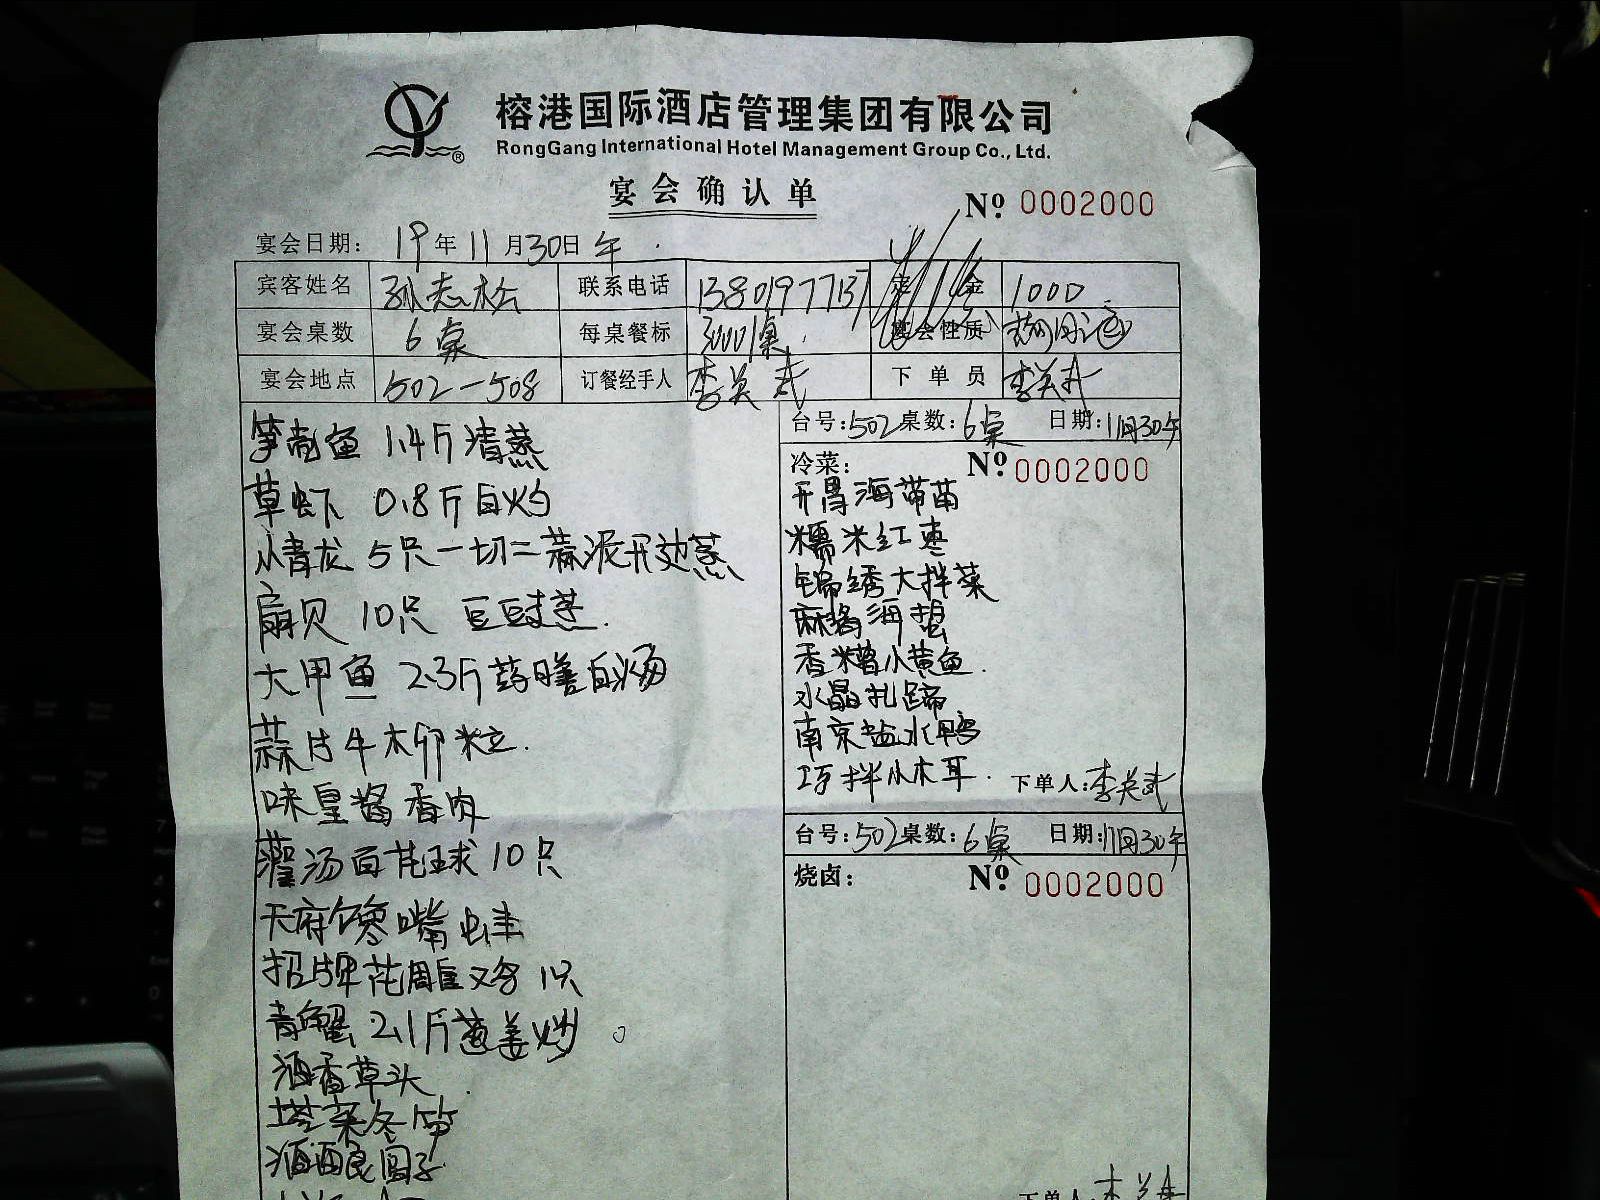 榕港国际酒店管理集团有限公司
RongGang International Hotel Management Group Co., Ltd.
宴会确认单
№ 0002000
宴会日期: 19年11月30日 午
宾客姓名 孙志松 联系电话 13801977137 定金 1000
宴会桌数 6桌 每桌餐标 3000/桌 宴会性质
宴会地点 502-508 订餐经手人 李关武 下单员 李关武
笋壳鱼 1.4斤清蒸
草虾 0.8斤白灼
小青龙 5只一切二蒜泥开边蒸
扇贝 10只 豆豉蒸
大甲鱼 2.3斤药膳白汤
蒜片牛柳粒
味皇酱香肉
灌汤百花球10只
天府馋嘴蛙
招牌花雕鸡1只
青蟹 2.1斤葱姜炒
酒香草头
塔菜冬笋
酒酿圆子
台号:502桌数:6桌 日期:11月30午
冷菜: № 0002000
开胃海带苗
糯米红枣
锦绣大拌菜
麻酱海蜇
香糟小黄鱼
水晶扎蹄
南京盐水鸭
巧拌小木耳
下单人:李关武
台号:502桌数:6桌 日期:11月30午
烧卤: № 0002000
下单人:李关武